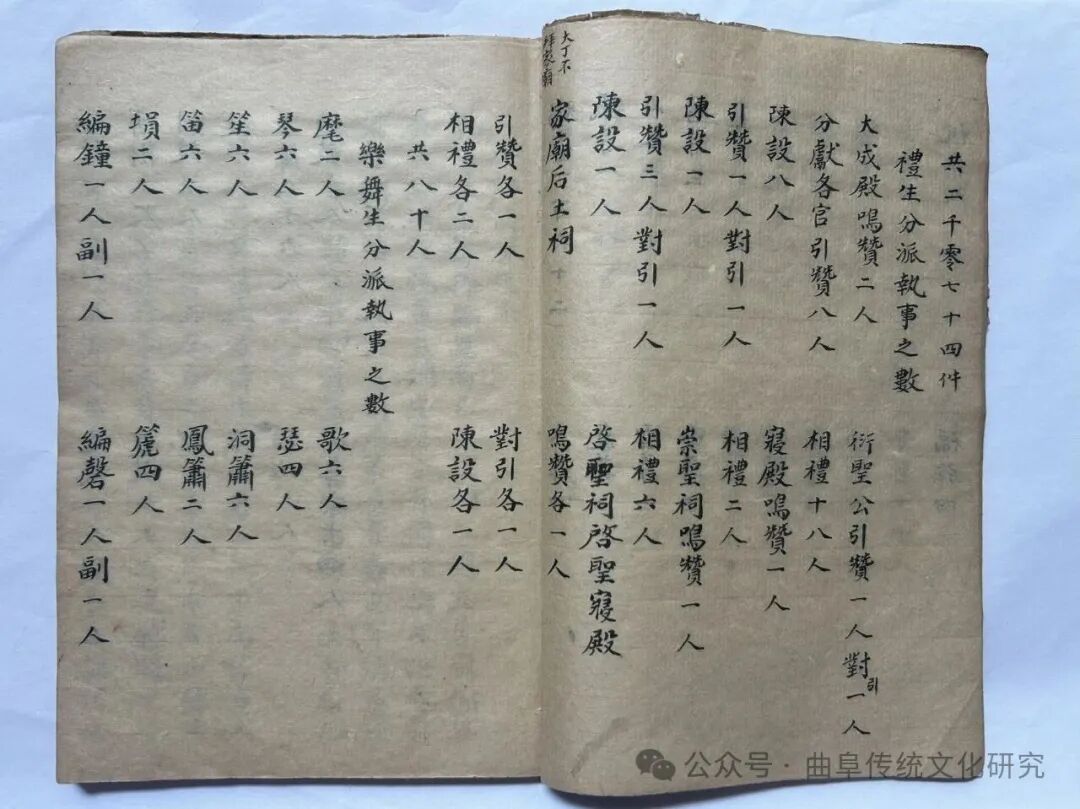 共二千零七十四件
禮生分派執事之數
大成殿鳴贊二人 衍聖公引贊一人對引一人
分獻各官引贊八人 相禮十八人
陳設八人 寢殿鳴贊一人
引贊一人對引一人 相禮二人
陳設一人 崇聖祠鳴贊一人
引贊三人對引一人 相禮六人
陳設一人 啓聖祠啓聖寢殿
大丁不
拜家廟
家廟后土祠 鳴贊各一人
引贊各一人 對引各一人
相禮各二人 陳設各一人
共八十人
樂舞生分派執事之數
麾二人 歌六人
琴六人 瑟四人
笙六人 洞簫六人
笛六人 鳳簫二人
塤二人 篪四人
編鐘一人副一人 編磬一人副一人
公众号·曲阜传统文化研究